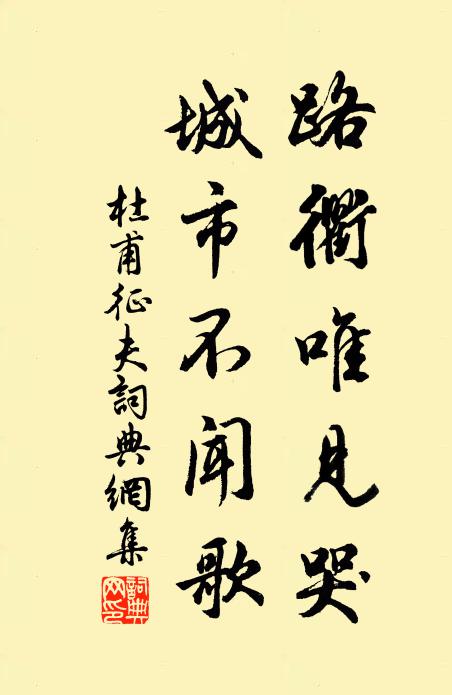 路衢唯見哭
城市不聞歌
杜甫征夫詞典網集
詞典網印